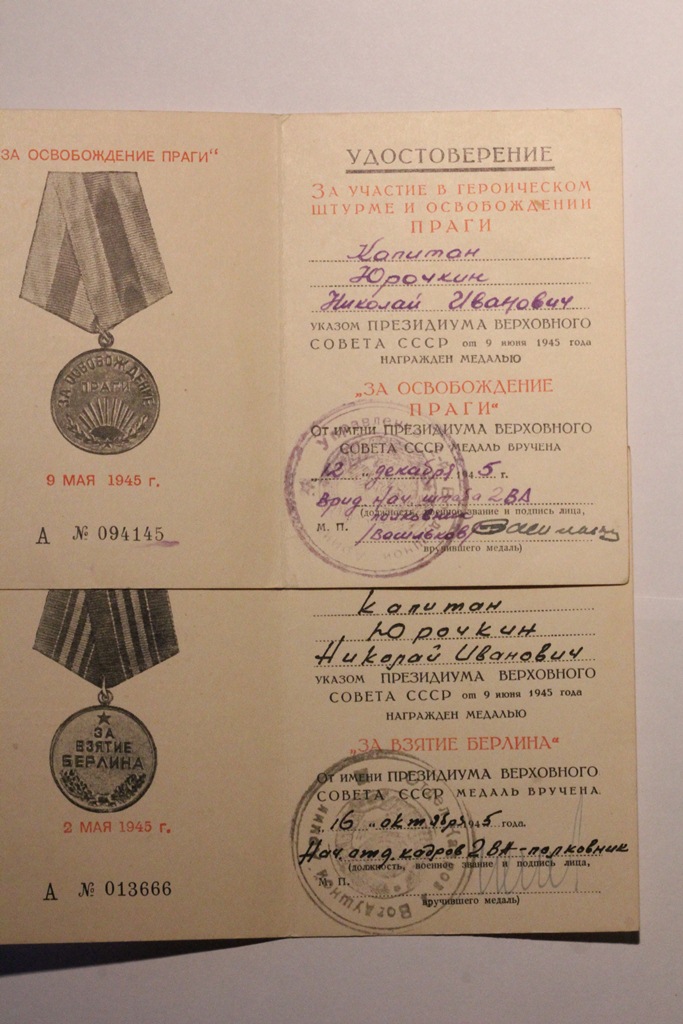 ЗА ОСВОБОЖДЕНИЕ ПРАГИ“
ЗА ОСВОБОЖДЕНИЕ
ПРАГИ
9 МАЯ 1945 г.
А № 094145
УДОСТОВЕРЕНИЕ
ЗА УЧАСТИЕ В ГЕРОИЧЕСКОМ
ШТУРМЕ И ОСВОБОЖДЕНИИ
ПРАГИ
Капитан
Юрочкин
Николай Иванович
УКАЗОМ ПРЕЗИДИУМА ВЕРХОВНОГО
СОВЕТА СССР от 9 июня 1945 года
НАГРАЖДЕН МЕДАЛЬЮ
„ЗА ОСВОБОЖДЕНИЕ
ПРАГИ“
От имени ПРЕЗИДИУМА ВЕРХОВНОГО
СОВЕТА СССР МЕДАЛЬ ВРУЧЕНА
„12 „ декабря 1945 г.
Врид Нач. штаба 2 ВА
полковник
(должность, звание и подпись лица,
М. П. /Васильков/
вручившего медаль)
ЗА
ВЗЯТИЕ
БЕРЛИНА
2 МАЯ 1945 г.
А № 013666
Капитан
Юрочкин
Николай Иванович
УКАЗОМ ПРЕЗИДИУМА ВЕРХОВНОГО
СОВЕТА СССР от 9 июня 1945 года
НАГРАЖДЕН МЕДАЛЬЮ
„ЗА ВЗЯТИЕ БЕРЛИНА“
От имени ПРЕЗИДИУМА ВЕРХОВНОГО
СОВЕТА СССР МЕДАЛЬ ВРУЧЕНА.
„16 „ октября 1945 года.
Нач. отд. кадров 2 ВА – полковник
(должность, военное звание и подпись лица,
М. П.
вручившего медаль)